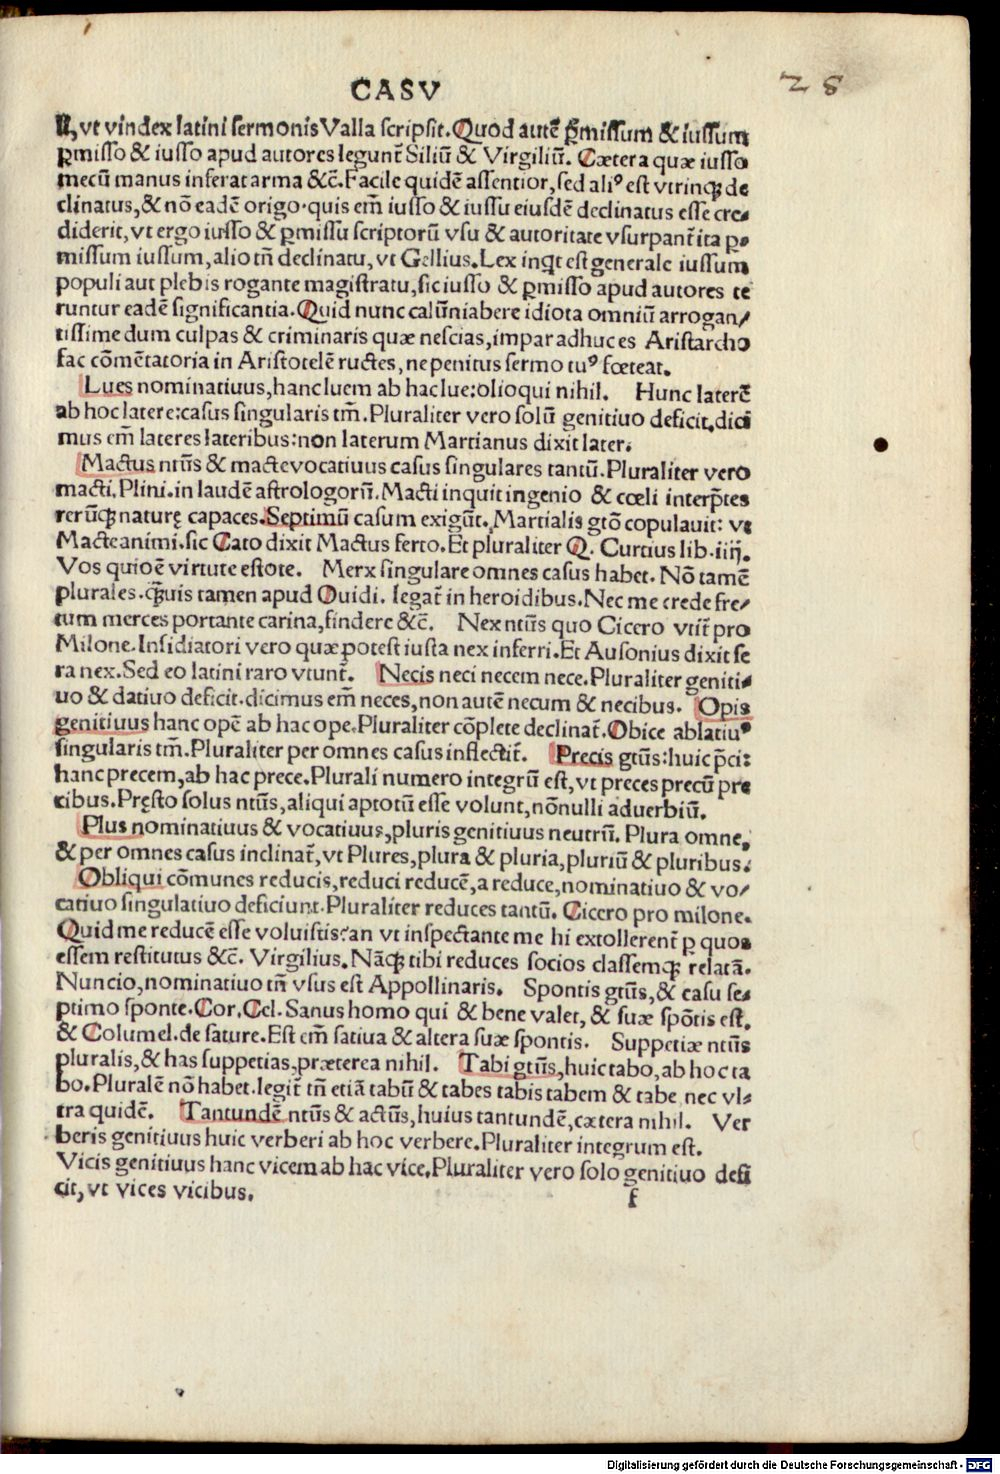 CASV
28
ꝶ, vt vindex latini sermonis Valla scripsit. Quod autẽ ꝑmissum & iussum
ꝑmisso & iusso apud autores legunt̃ Siliũ & Virgiliũ. Cætera quæ iusso
mecũ manus inferat arma &c̃. Facile quidẽ assentior, sed aliꝰ est vtrinqꝫ de
clinatus, & nõ eadẽ origo. quis em̃ iusso & iussu eiusdẽ declinatus esse cre⸗
diderit, vt ergo iusso & ꝑmissu scriptorũ vsu & autoritate vsurpant̃ ita ꝑ⸗
missum iussum, alio tñ declinatu, vt Gellius. Lex inqt est generale iussum
populi aut plebis rogante magistratu, sic iusso & ꝑmisso apud autores te
runtur eadẽ significantia. Quid nunc calũniabere idiota omniũ arrogan/
tissime dum culpas & criminaris quæ nescias, impar adhuc es Aristarcho
fac cõmẽtatoria in Aristotelẽ ructes, ne penitus sermo tuꝰ fœteat.
Lues nominatiuus, hanc luem ab hac lue: olioqui nihil. Hunc laterẽ
ab hoc latere: casus singularis tm̃. Pluraliter vero solũ genitiuo deficit, dici
mus em̃ lateres lateribus: non laterum Martianus dixit later.
Mactus ntũs & macte vocatiuus casus singulares tantũ. Pluraliter vero
macti. Plini. in laudẽ astrologorũ. Macti inquit ingenio & cœli interp̃tes
rerũqꝫ naturę capaces. Septimũ casum exigũt. Martialis gtõ copulauit: vt
Macte animi. sic Cato dixit Mactus ferto. Et pluraliter Q. Curtius lib. iiij.
Vos quioẽ virtute estote. Merx singulare omnes casus habet. Nõ tamẽ
plurales. qꝫ̃uis tamen apud Ouidi. legat̃ in heroidibus. Nec me crede fre/
tum merces portante carina, findere &c̃. Nex ntũs quo Cicero vtit̃ pro
Milone. Insidiatori vero quæ potest iusta nex inferri. Et Ausonius dixit se
ra nex. Sed eo latini raro vtunt̃. Necis neci necem nece. Pluraliter geniti⸗
uo & datiuo deficit. dicimus em̃ neces, non autẽ necum & necibus. Opis
genitiuus hanc opẽ ab hac ope. Pluraliter cõplete declinat̃. Obice ablatiuꝰ
singularis tm̃. Pluraliter per omnes casus inflectit̃. Precis gtũs: huic p̃ci:
hanc precem, ab hac prece. Plurali numero integrũ est, vt preces precũ pre
cibus. Pręsto solus ntũs, aliqui aptotũ esse volunt, nõnulli aduerbiũ.
Plus nominatiuus & vocatiuus, pluris genitiuus neutrũ. Plura omne,
& per omnes casus inclinat̃, vt Plures, plura & pluria, pluriũ & pluribus.
Obliqui cõmunes reducis, reduci reducẽ, a reduce, nominatiuo & vo/
catiuo singulatiuo deficiunt. Pluraliter reduces tantũ. Cicero pro milone.
Quid me reducẽ esse voluistis? an vt inspectante me hi extollerent̃ ꝑ quos
essem restitutus &c̃. Virgilius. Nãqꝫ tibi reduces socios classemqꝫ relatã.
Nuncio, nominatiuo tñ vsus est Appollinaris. Spontis gtũs, & casu se⸗
ptimo sponte. Cor. Cel. Sanus homo qui & bene valet, & suæ spõtis est.
& Columel. de sature. Est em̃ satiua & altera suæ spontis. Suppetiæ ntũs
pluralis, & has suppetias, præterea nihil. Tabi gtũs, huic tabo, ab hoc ta
bo. Pluralẽ nõ habet. legit̃ tñ etiã tabũ & tabes tabis tabem & tabe nec vl⸗
tra quidẽ. Tantundẽ ntũs & actũs, huius tantundẽ, cætera nihil. Ver
beris genitiuus huic verberi ab hoc verbere. Pluraliter integrum est.
Vicis genitiuus hanc vicem ab hac vice. Pluraliter vero solo genitiuo defi
cit, vt vices vicibus.
f
Digitalisierung gefördert durch die Deutsche Forschungsgemeinschaft - DFG